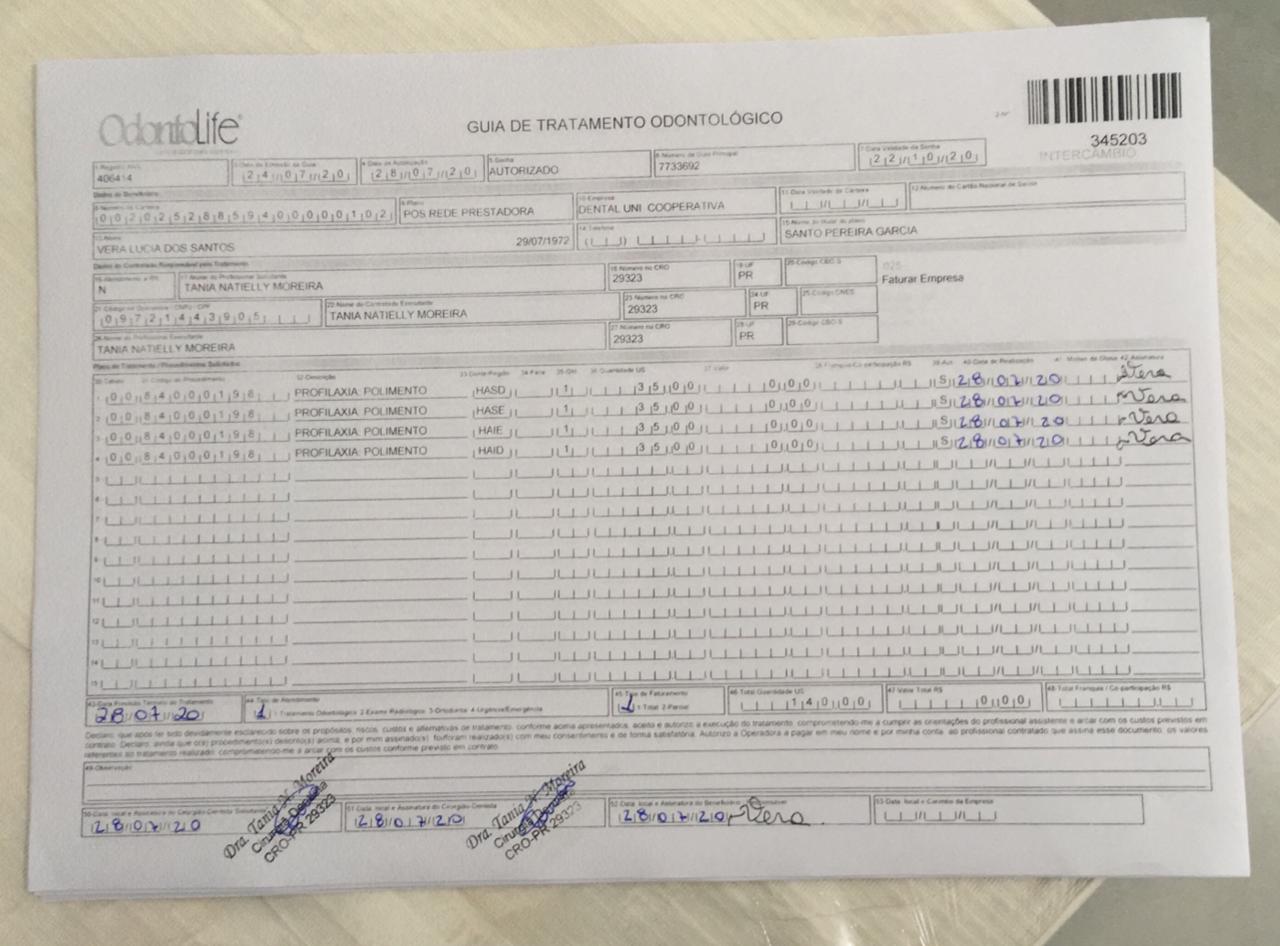 OdontoLife
GUIA DE TRATAMENTO ODONTOLÓGICO
2-Nº
345203
INTERCÂMBIO
1-Registro ANS 406414
3-Data de Emissão da Guia 24/07/20
4-Data de Autorização 28/07/20
5-Senha AUTORIZADO
6-Número da Guia Principal 7733692
7-Data Validade da Senha 22/10/20
Dados do Beneficiário
8-Número da Carteira 00202528859400000102
9-Plano POS REDE PRESTADORA
10-Empresa DENTAL UNI COOPERATIVA
11-Data Validade da Carteira
12-Número do Cartão Nacional de Saúde
13-Nome VERA LUCIA DOS SANTOS 29/07/1972
14-Telefone
15-Nome do titular do plano SANTO PEREIRA GARCIA
Dados do Contratado Responsável pelo Tratamento
16-Atendimento a RN N
17-Nome do Profissional Solicitante TANIA NATIELLY MOREIRA
18-Número no CRO 29323
19-UF PR
20-Código CBO-S
025-
Faturar Empresa
21-Código na Operadora / CNPJ / CPF 09721443905
22-Nome do Contratado Executante TANIA NATIELLY MOREIRA
23-Número no CRO 29323
24-UF PR
25-Código CNES
26-Nome do Profissional Executante TANIA NATIELLY MOREIRA
27-Número no CRO 29323
28-UF PR
29-Código CBO-S
Plano de Tratamento / Procedimentos Solicitados
30-Tabela 31-Código do Procedimento 32-Descrição 33-Dente/Região 34-Face 35-Qtd 36-Quantidade US 37-Valor 38-Franquia/Co-participação R$ 39-Aut 40-Data de Realização 41-Motivo da Glosa 42-Assinatura
1- 00 84000198 PROFILAXIA: POLIMENTO HASD 1 35,00 0,00 S 28/07/20 Vera
2- 00 84000198 PROFILAXIA: POLIMENTO HASE 1 35,00 0,00 S 28/07/20 Vera
3- 00 84000198 PROFILAXIA: POLIMENTO HAIE 1 35,00 0,00 S 28/07/20 Vera
4- 00 84000198 PROFILAXIA: POLIMENTO HAID 1 35,00 0,00 S 28/07/20 Vera
5-
6-
7-
8-
9-
10-
11-
12-
13-
14-
15-
43-Data Previsão Término do Tratamento 28/07/20
44-Tipo de Atendimento 1 1-Tratamento Odontológico 2-Exame Radiológico 3-Ortodontia 4-Urgência/Emergência
45-Tipo de Faturamento 1 1-Total 2-Parcial
46-Total Quantidade US 140,00
47-Valor Total R$ 0,00
48-Total Franquia / Co-participação R$
Declaro, que após ter sido devidamente esclarecido sobre os propósitos, riscos, custos e alternativas de tratamento, conforme acima apresentados, aceito e autorizo a execução do tratamento, comprometendo-me a cumprir as orientações do profissional assistente e arcar com os custos previstos em
contrato. Declaro, ainda que o(s) procedimento(s) descrito(s) acima, e por mim assinado(s), foi/foram realizado(s) com meu consentimento e de forma satisfatória. Autorizo a Operadora a pagar em meu nome e por minha conta, ao profissional contratado que assina esse documento, os valores
referentes ao tratamento realizado, comprometendo-me a arcar com os custos conforme previsto em contrato.
49-Observação
50-Data, local e Assinatura do Cirurgião-Dentista Solicitante 28/07/20
Dra. Tania N. Moreira
Cirurgiã Dentista
CRO-PR 29323
51-Data, local e Assinatura do Cirurgião-Dentista 28/07/20
Dra. Tania N. Moreira
Cirurgiã Dentista
CRO-PR 29323
52-Data, local e Assinatura do Beneficiário / Responsável 28/07/20 Vera
53-Data, local e Carimbo da Empresa